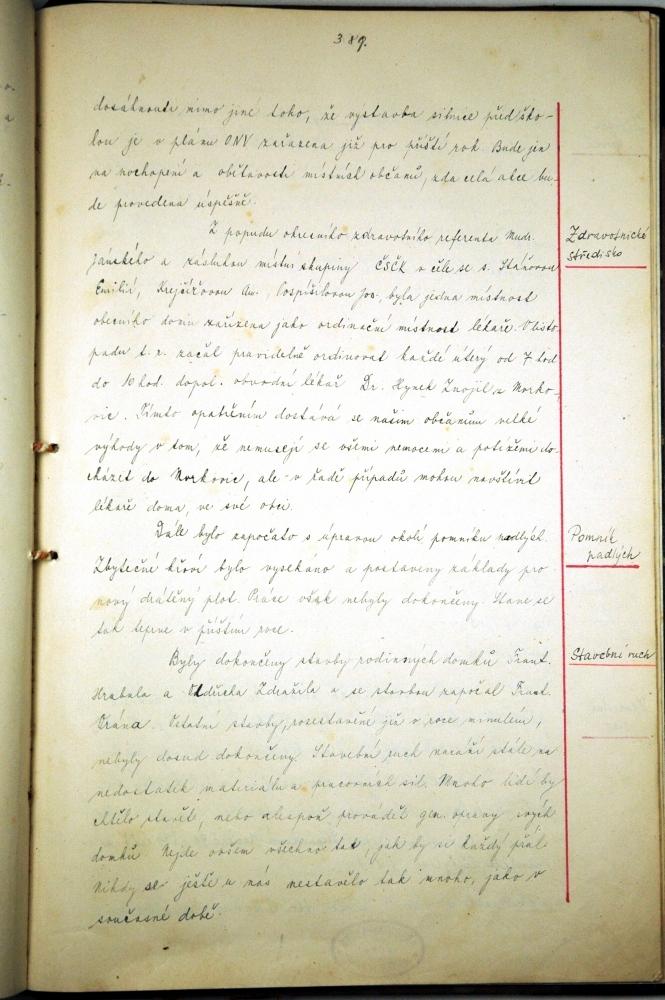 389.
dosáhnouti mimo jiné toho, že výstavba silnice před ško-
lou je v plánu ONV zařazena již pro příští rok. Bude jen
na pochopení a obětavosti místních občanů, zda celá akce bu-
de provedena úspěšně.
Z popudu okresního zdravotního referenta Mudr.
Zdravotnické
středisko
Jánského a zásluhou místní skupiny ČSČK v čele se s. Stáňovou
Emilií, Krejčířovou An., Pospíšilovou Jos., byla jedna místnost
obecního domu zařízena jako ordinační místnost lékaře. V listo-
padu t. r. začal pravidelně ordinovat každé úterý od 7 hod
do 10 hod. dopol. obvodní lékař Dr. Hynek Znojil z Morko-
vic. Tímto opatřením dostává se našim občanům velké
výhody v tom, že nemusejí se všemi nemocemi a potížemi do-
cházet do Morkovic, ale v řadě případů mohou navštívit
lékaře doma, ve své obci.
Dále bylo započato s úpravou okolí pomníku padlých.
Pomník
padlých
Zbytečné křoví bylo vysekáno a postaveny základy pro
nový drátěný plot. Práce však nebyly dokončeny. Stane se
tak teprve v příštím roce.
Byly dokončeny stavby rodinných domků Frant.
Stavební ruch
Hrabala a Oldřicha Zdražila a se stavbou započal Frant.
Vrána. Ostatní stavby, rozestavěné již v roce minulém,
nebyly dosud dokončeny. Stavební ruch naráží stále na
nedostatek materiálu a pracovních sil. Mnoho lidí by
chtělo stavět, nebo alespoň provádět gen. opravy svých
domků. Nejde ovšem všechno tak, jak by si každý přál.
Nikdy se ještě u nás nestavělo tak mnoho, jako v
současné době.